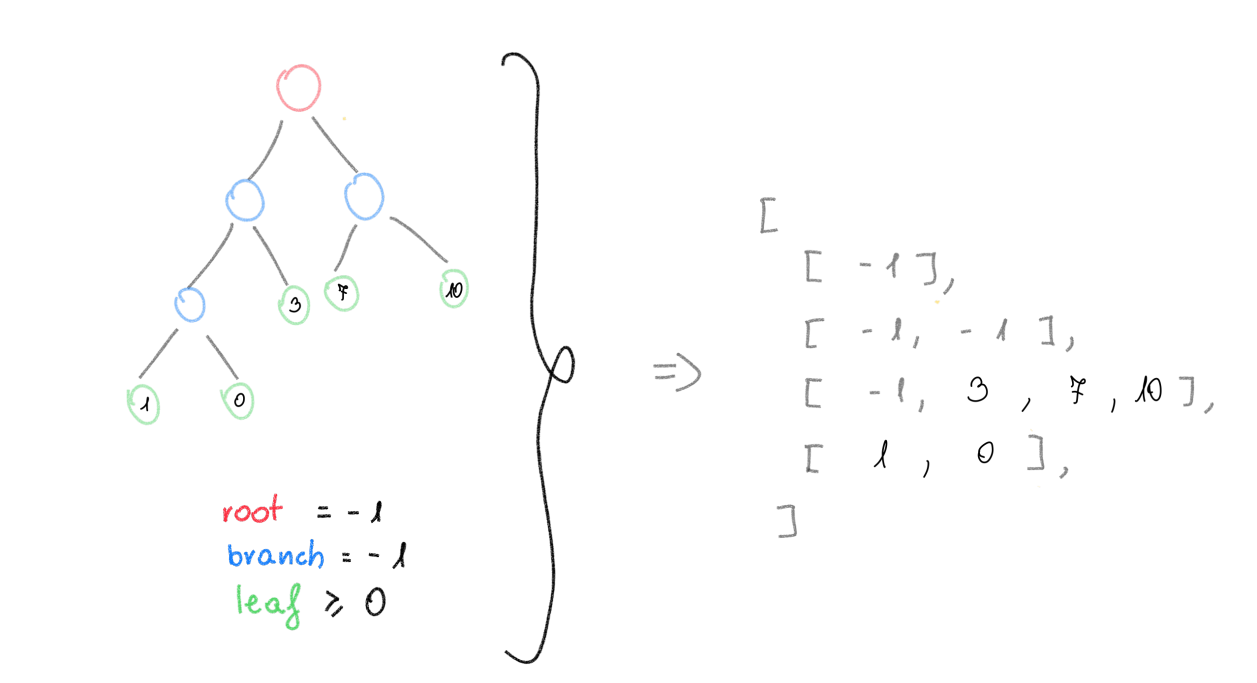 3 7 10
1 0
root = -1
branch = -1
leaf ⩾ 0
=>
[
[ -1 ],
[ -1, -1 ],
[ -1, 3, 7, 10 ],
[ 1, 0 ],
]